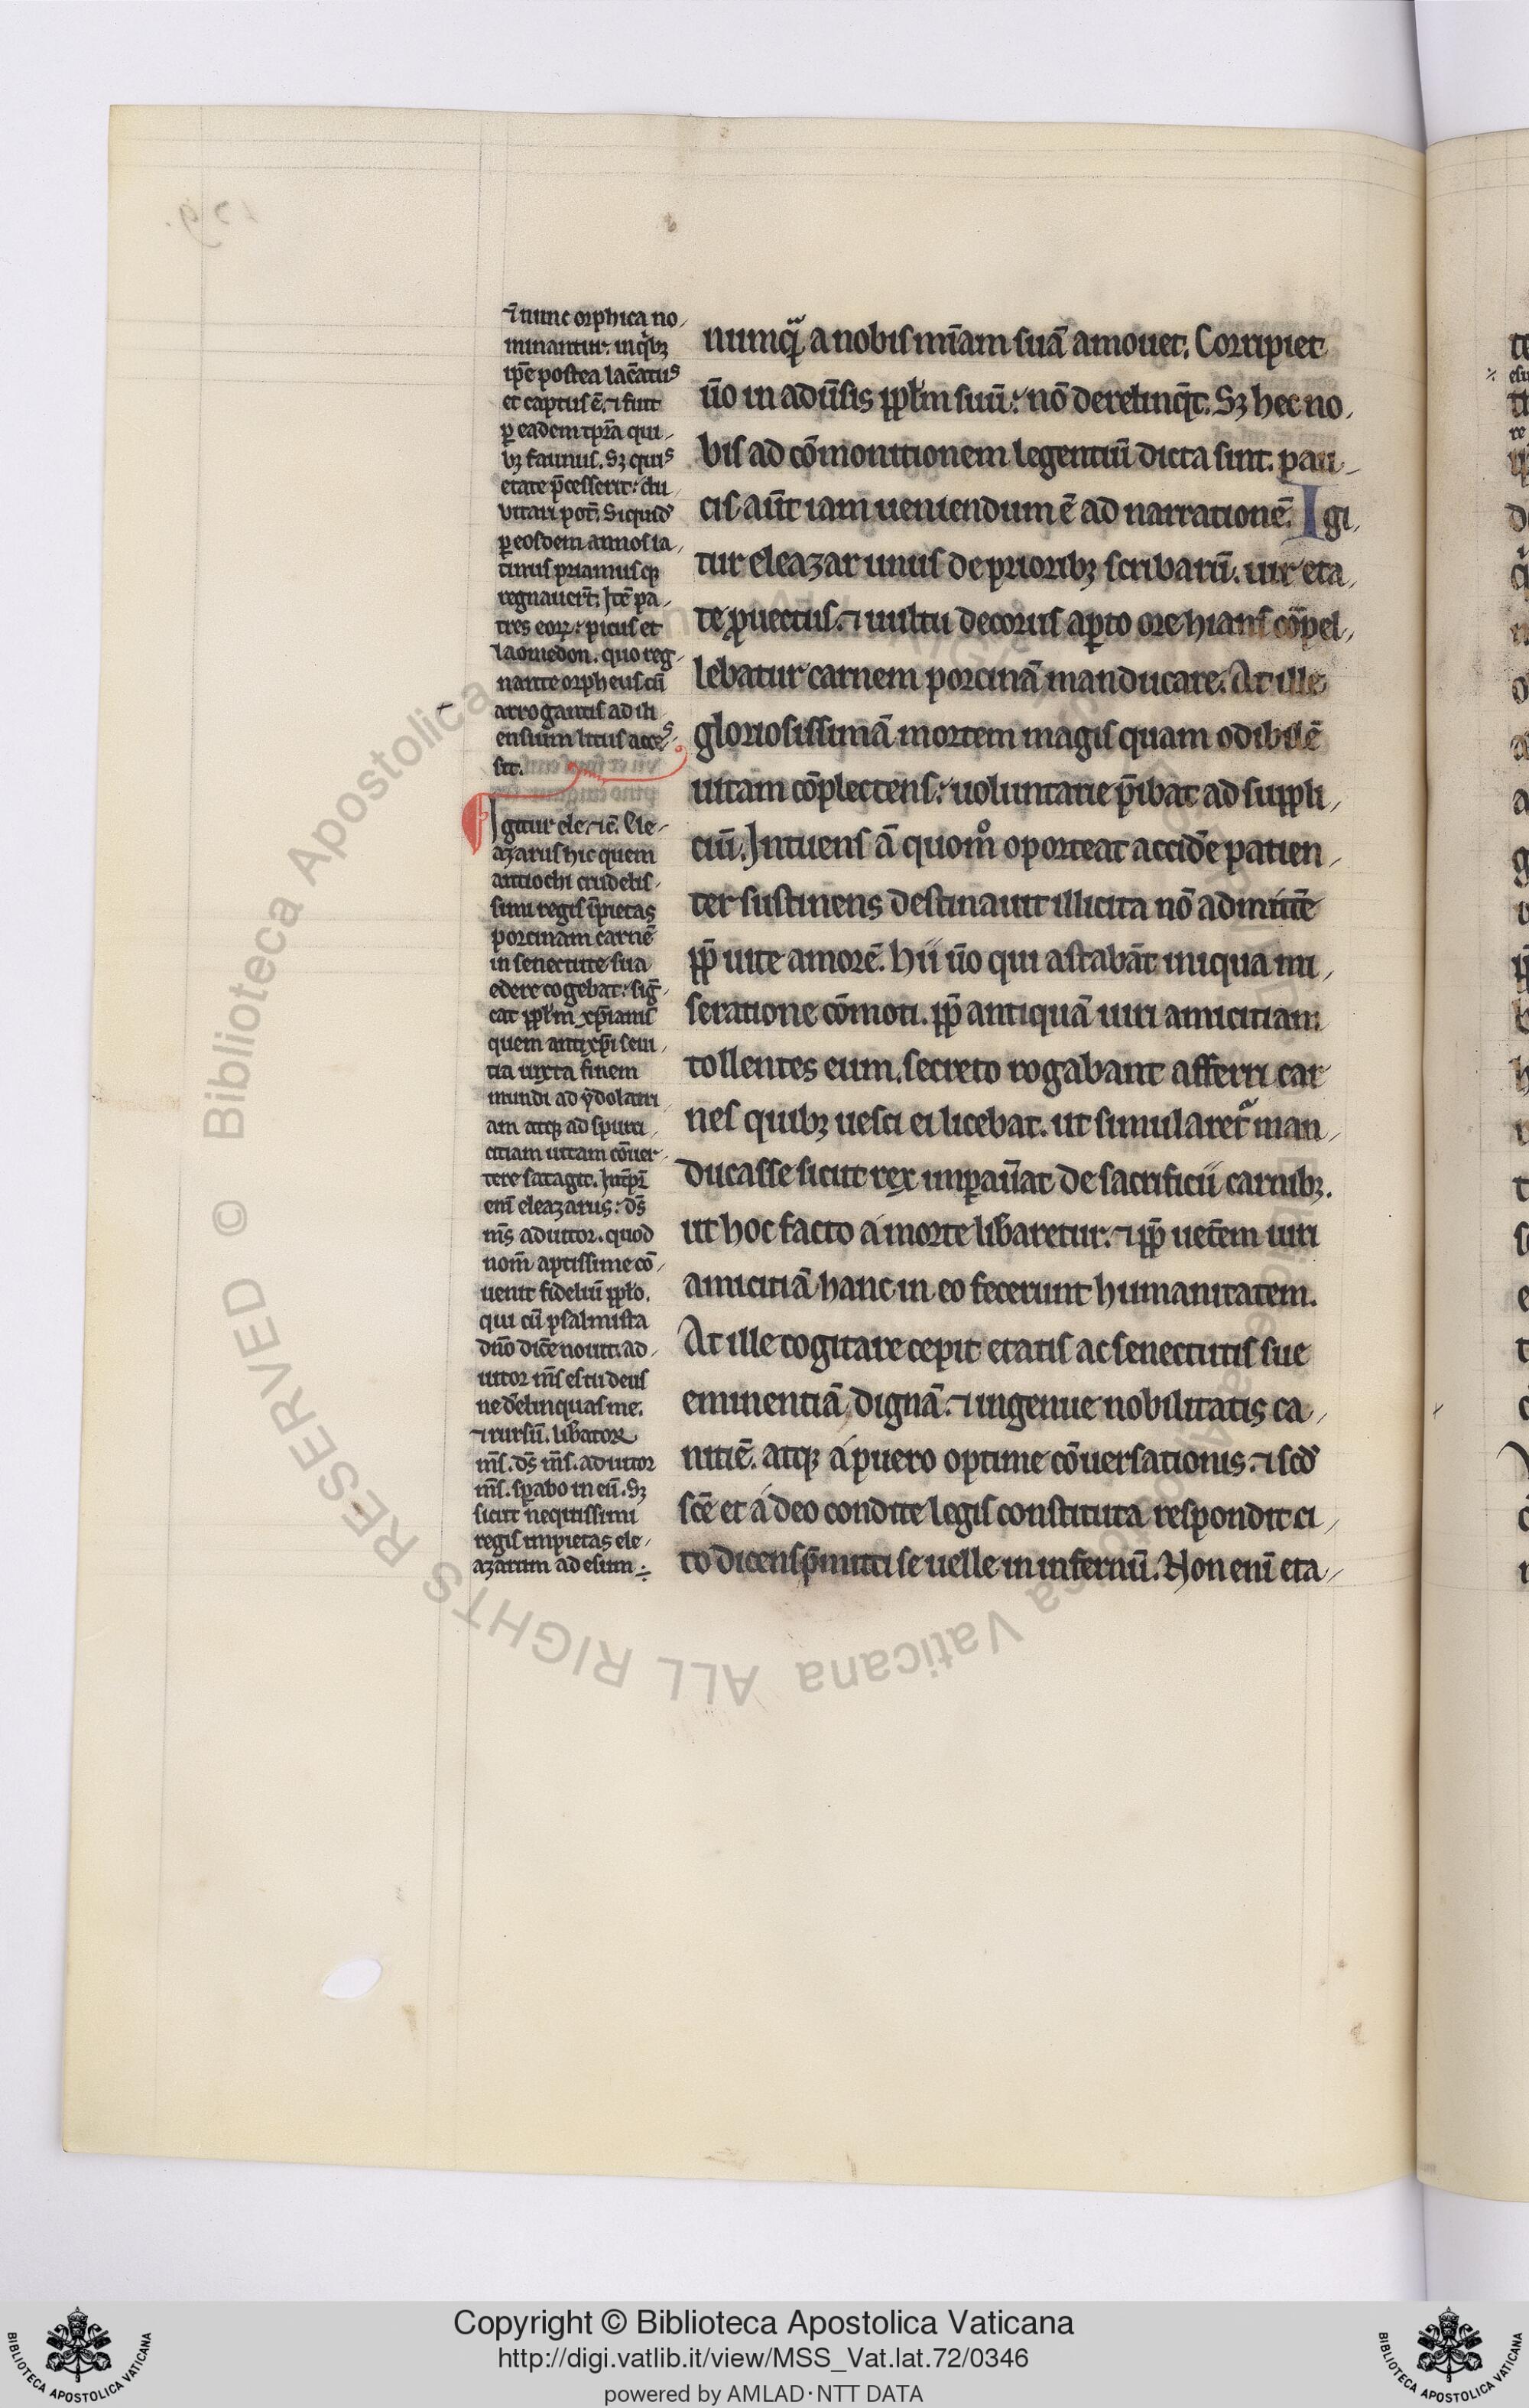 ⁊ nunc orphica no
minantur. in qͥbꝫ
ip̄e postea lac̄atꝰ
et captus ē. ⁊ sunt
ꝑ eadem tp̄ra qui
bꝫ faunus. Sꝫ quiꝰ
etate p̄cesserit: du
bitari pot̄. Siquid̄
ꝑ eosdem annos la
tinus priamusqꝫ
regnauer̄t. Itē pa
tres eoꝝ: picus et
laomedon. quo reg
nante orpheus cū
arrogautis ad ili
ensium litus acceꝰ
sit.
Igitur ele. ⁊ c̄. Ele
azarus hic quem
antiochi crudelis
simi regis īpietas
porcinam carnē
in senectute sua
edere cogebat: siḡ
cat pp̄lm xp̄ianis
quem antixp̄i seui
tia iuxta finem
mundi ad ẏdolatri
am atqꝫ ad spurci
ciciam uitam cōuer
tere satagit. Int̄p̄r̄
eni̅ eleazarus: d̄s
m̄s adiutor. quod
nom̄ aptissime cō
uenit fideliū pp̄lo.
qui cū psalmista
dn̄o dic̄e nouit: ad
iutor m̄s es tu deus
ne d̄elinquas me.
⁊ rursū. lib̄ator
m̄s. d̄s m̄s. adiutor
m̄s. sꝑabo in eū. Sꝫ
sicut nequissimi
regis impietas ele
azarum ad esum
numqᷓ a nobis mīam suā amouet. Corripiet
ūo in adūsis pp̄lm suū: nō derelinqͥt. Sꝫ hec no
bis ad cōmonitionem legentiū dicta sint. pau
cis aūt iam ueniendum ē ad narrationē. Igi
tur eleazar unus de prioribꝫ scribarū. uir eta
te ꝓuectus. ⁊ uultu decorus aꝑto ore hians cōpel
lebatur carnem porcinā manducare. At ille
gloriosissimā mortem magis quam odibilē
uitam cōplectens: uoluntarie p̄ibat ad suppli
ciū. Intuens ā quomͦ oporteat accid̄e patien
ter sustinens destinauit illicita nō admitt̄e
pp̄ uite amorē. Hii ūo qui astabāt iniqua mi
seratione cōmoti. pp̄ antiquā uiri amicitiam
tollentes eum. secreto rogabant afferri car
nes quibꝫ uesci ei licebat. ut simularet᷑ man
ducasse sicut rex imꝑau̅at de sacrificii carnibꝫ.
ut hoc facto a morte lib̄aretur. ⁊ pp̄ uet̄em uiri
amicitiā hanc in eo fecerunt humanitatem.
At ille cogitare cepit etatis ac senectutis sue
eminentiā dignā. ⁊ ingenue nobilitatis ca
nitiē. atqꝫ a puero optime cōuersationis. ⁊ scd̄
sc̄e et a deo condite legis constituta respondit ci
to dicens p̄mitti se uelle in infernū. Non eni̅ eta
Copyright © Biblioteca Apostolica Vaticana
http://digi.vatlib.it/view/MSS_Vat.lat.72/0346
powered by AMLAD·NTT DATA